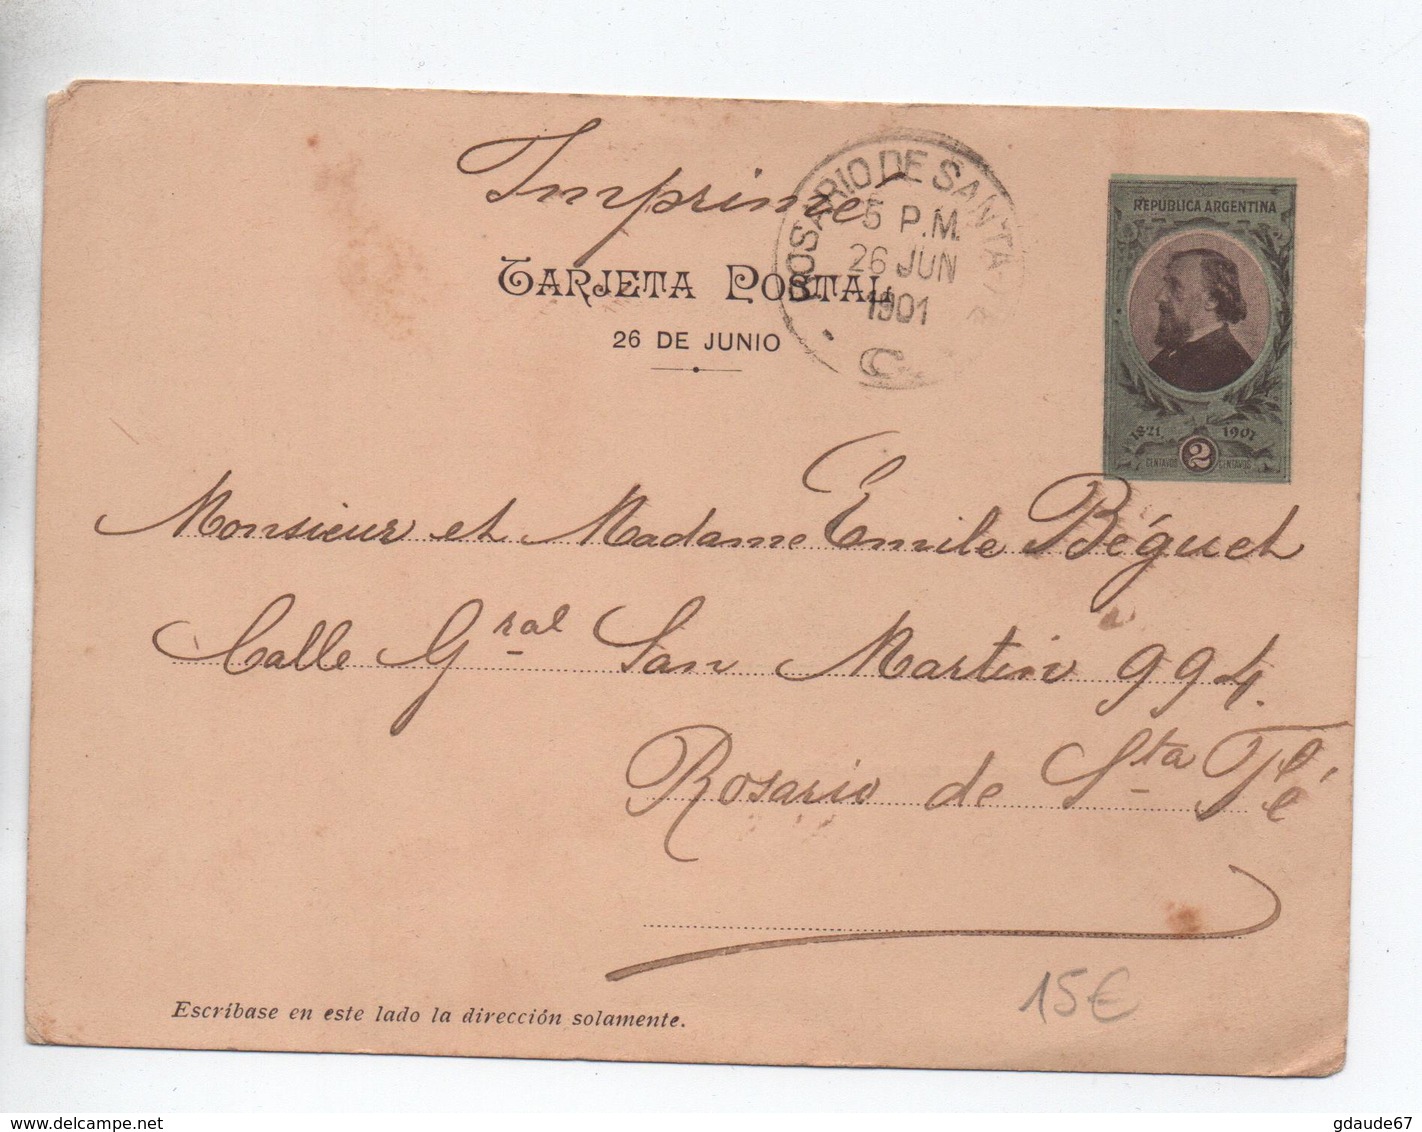 Imprimé
ROSARIO DE SANTA
5 P.M.
26 JUN
1901
TARJETA POSTAL
26 DE JUNIO
REPUBLICA ARGENTINA
1821 1901
CENTAVOS 2 CENTAVOS
Monsieur et Madame Emile Béguet
Calle Gral San Martin 994.
Rosario de Sta Fé
Escríbase en este lado la dirección solamente.
15€
www.delcampe.net
gdaude67